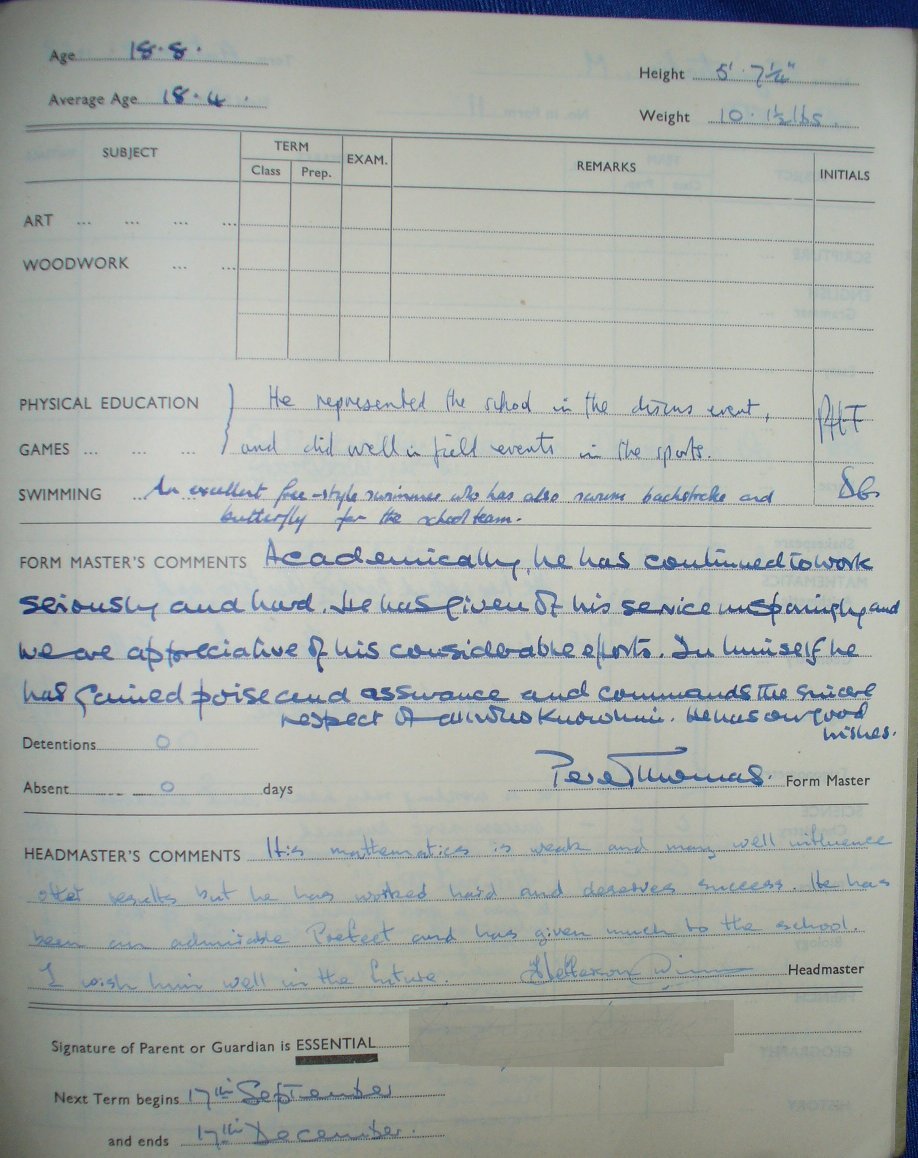 Age 18.8.
Height 5' 7¼"
Average Age 18.4.
Weight 10. 1½ lbs.
SUBJECT TERM EXAM. REMARKS INITIALS
Class Prep.
ART ... ... ... ...
WOODWORK ... ...
PHYSICAL EDUCATION He represented the school in the discus event, PHF
GAMES ... ... ... and did well in field events in the sports.
SWIMMING ... An excellent free-style swimmer who has also swum backstroke and
butterfly for the school team.
FORM MASTER'S COMMENTS Academically, he has continued to work
seriously and hard. He has given of his service unsparingly and
we are appreciative of his considerable efforts. In himself he
has gained poise and assurance and commands the sincere
respect of all who know him. He has our good
wishes.
Detentions 0
Absent 0 days
Thomas. Form Master
HEADMASTER'S COMMENTS His mathematics is weak and may well influence
other results but he has worked hard and deserves success. He has
been an admirable Prefect and has given much to the school.
I wish him well in the future. Headmaster
Signature of Parent or Guardian is ESSENTIAL
Next Term begins 17th September
and ends 17th December.